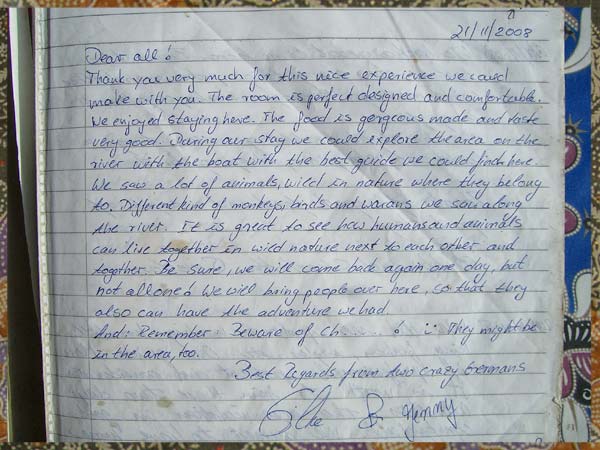 21/11/2008
Dear all!
Thank you very much for this nice experience we could
make with you. The room is perfect designed and comfortable.
We enjoyed staying here. The food is gorgeous made and taste
very good. During our stay we could explore the area on the
river with the boat with the best guide we could find here.
We saw a lot of animals, wild in nature where they belong
to. Different kind of monkeys, birds and warans we saw along
the river. It is great to see how humans and animals
can live together in wild nature next to each other and
together. Be sure, we will come back again one day, but
not allone! We will bring people over here, so that they
also can have the adventure we had.
And: Remember: Beware of Ch......! They might be
in the area, too.
Best Regards from two crazy Germans
& Jenny